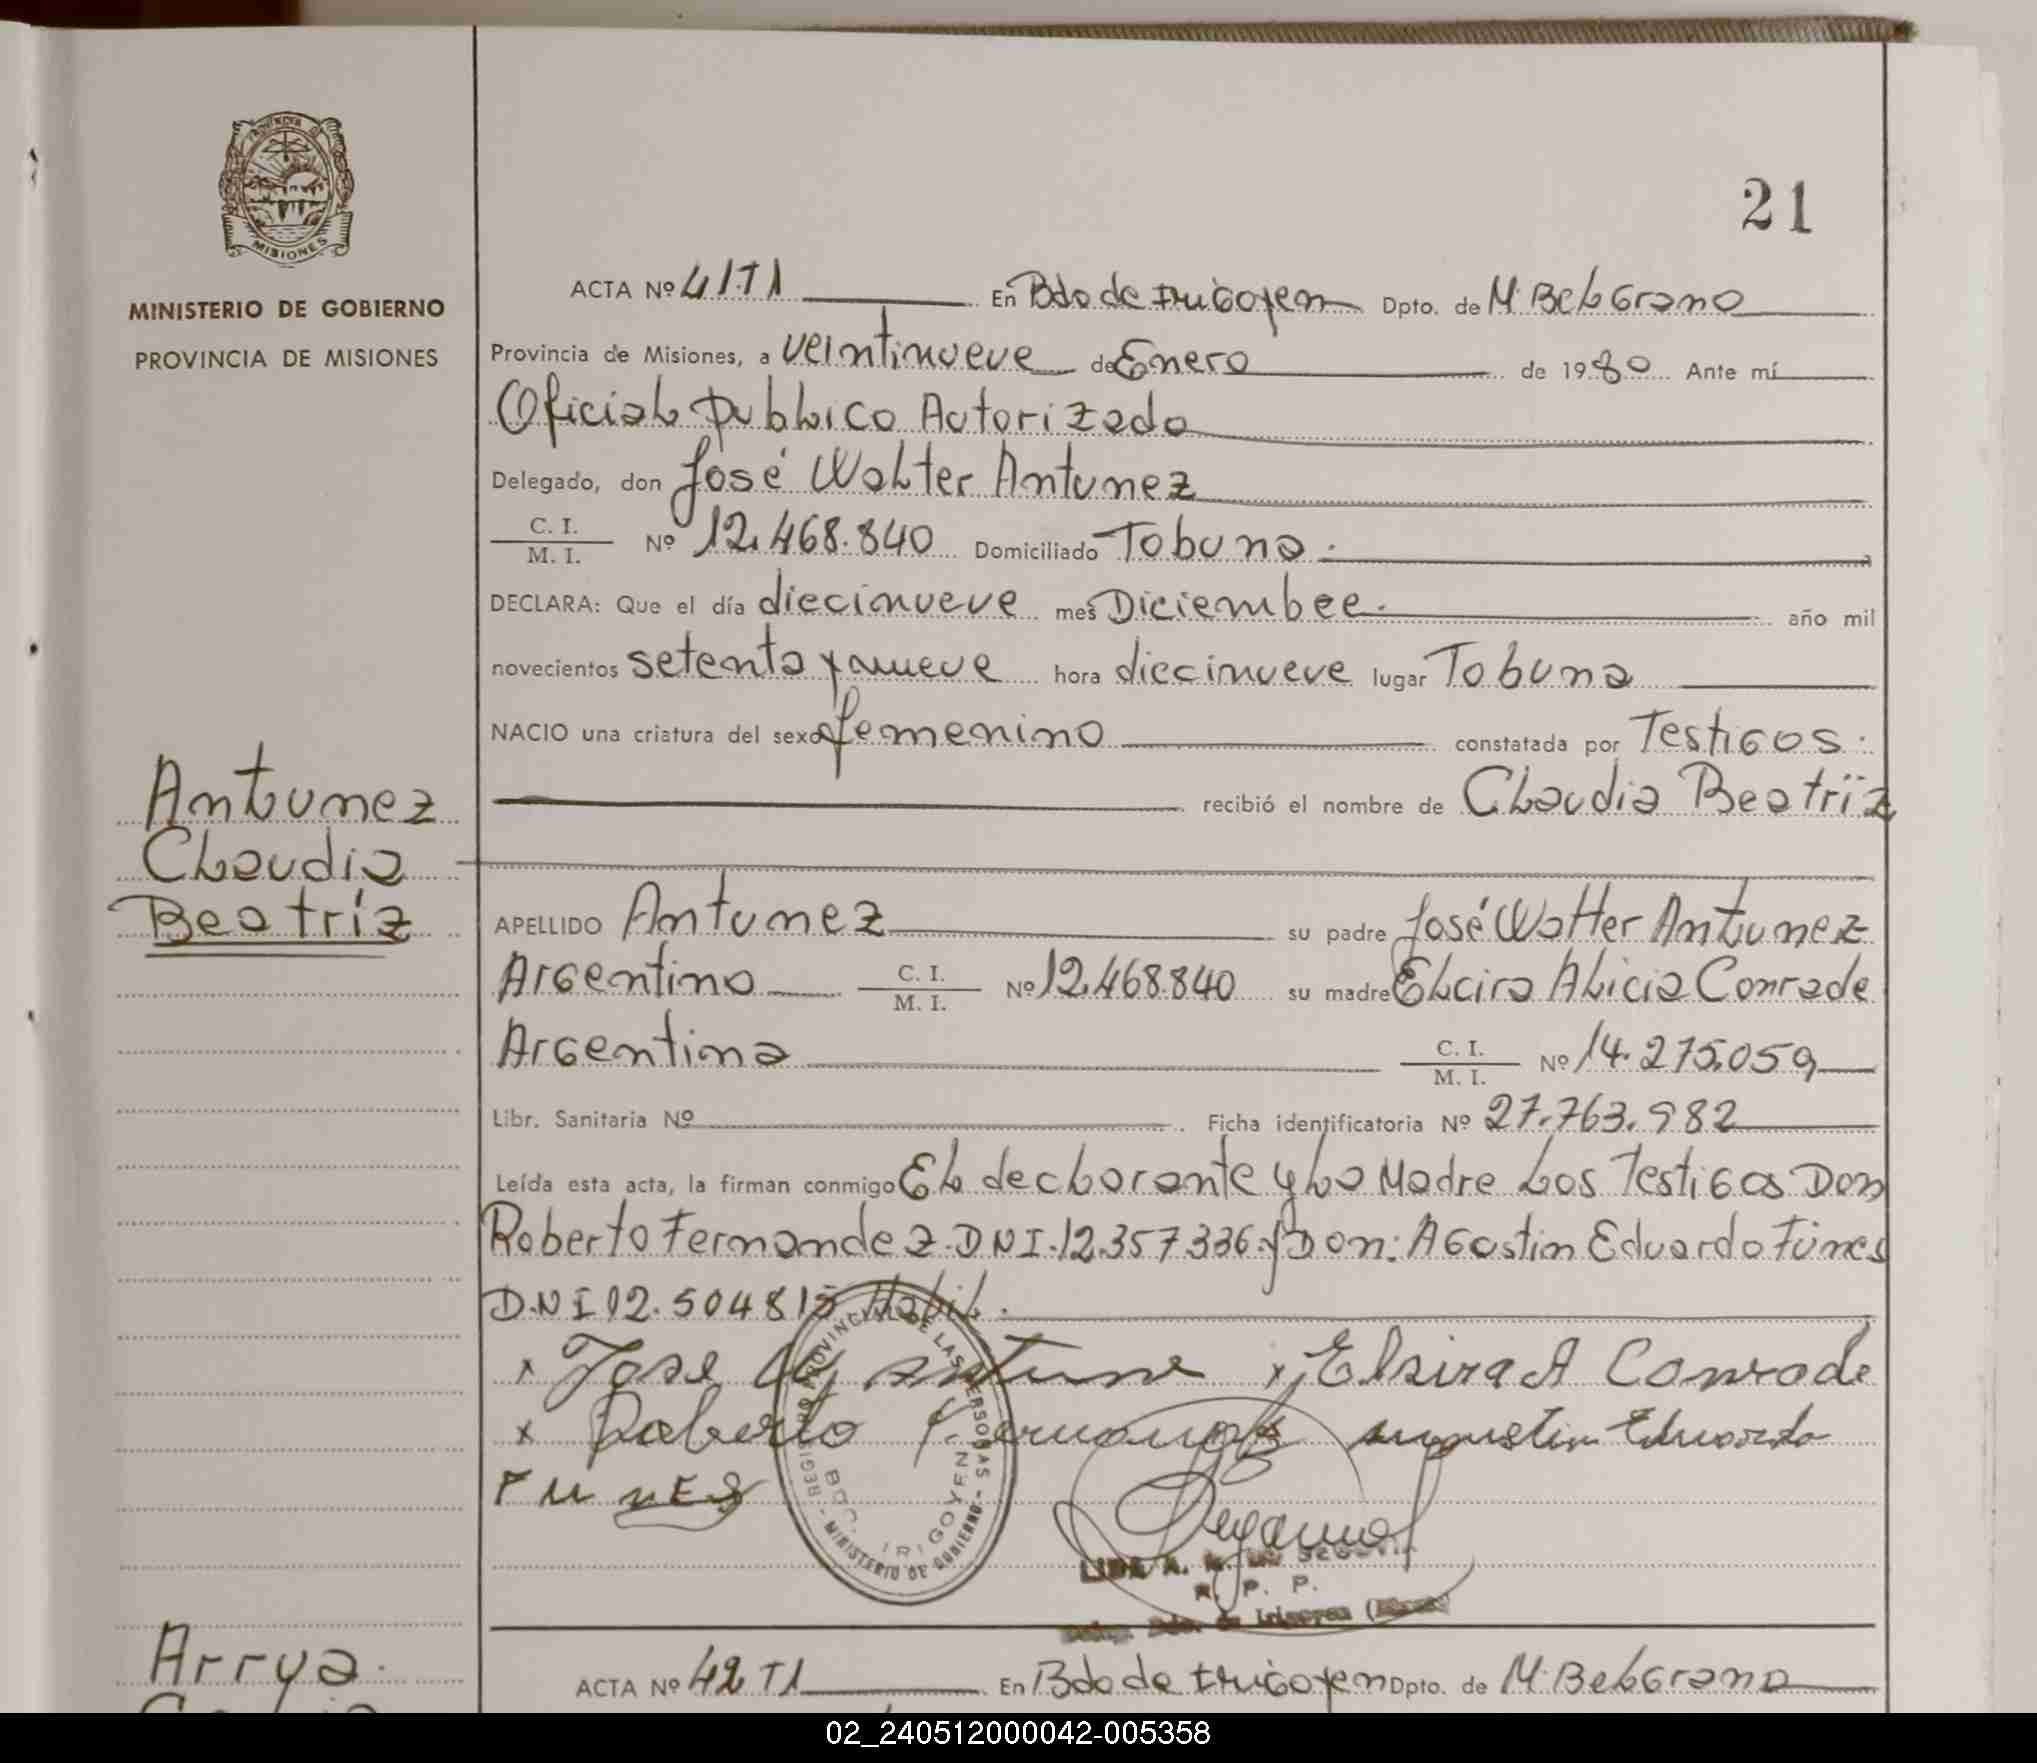 21
MINISTERIO DE GOBIERNO
PROVINCIA DE MISIONES
MISIONES
ACTA Nº 41.T1 En Bdo de Irigoyen Dpto. de M. Belgrano
Provincia de Misiones, a veintinueve de Enero de 1980 Ante mí
Oficial publico Autorizado
Delegado, don José Walter Antunez
C. I. / M. I. Nº 12.468.840 Domiciliado Tobuna.
DECLARA: Que el día diecinueve mes Diciembee. año mil
novecientos setenta y nueve hora diecinueve lugar Tobuna
NACIO una criatura del sexo femenino constatada por Testigos.
recibió el nombre de Claudia Beatriz
Antunez
Claudia
Beatríz
APELLIDO Antunez su padre José Walter Antunez
Argentino C. I. / M. I. Nº 12.468.840 su madre Elcira Alicia Conrade
Argentina C. I. / M. I. Nº 14.275.059
Libr. Sanitaria Nº Ficha identificatoria Nº 27.763.982
Leída esta acta, la firman conmigo El declarante y la Madre Los Testigos Don
Roberto Fernandez. DNI. 12.357.336. y Don: Agostin Eduardo Fúnes
D.N I 12.504815 Habil.
x Jose W Antune x Elsira A Conrade
x Roberto Fernandez Augustin Eduardo
FUNES
PROVINCIAL DE LAS PERSONAS - MINISTERIO DE GOBIERNO - REGISTRO
BDO. IRIGOYEN
P. P.
de Irigoyen
Arrya.
ACTA Nº 42 T1 En Bdo de Irigoyen Dpto. de M. Belgrano
02_240512000042-005358